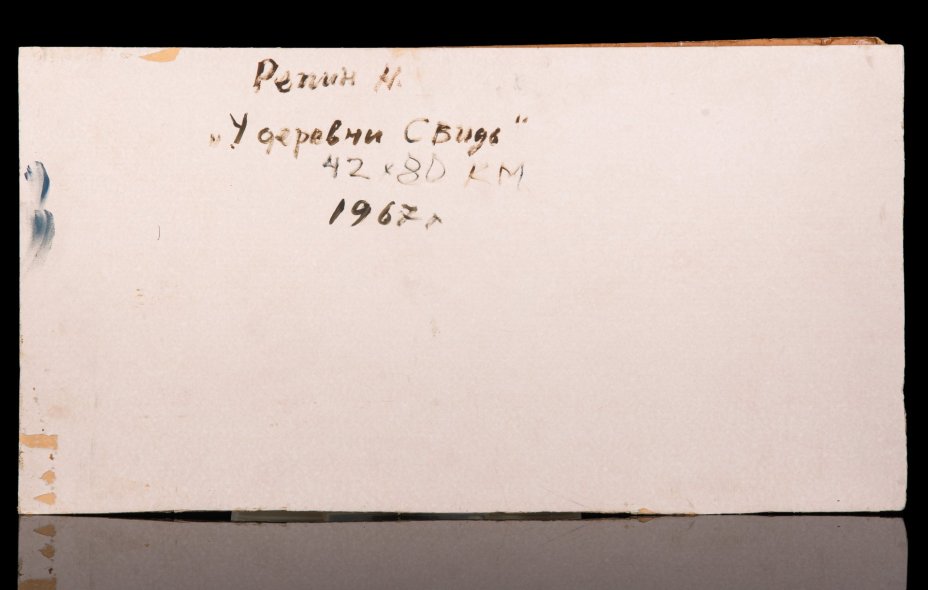 Репин Н.
„У деревни Свидь"
42×80 КМ
1967 г.